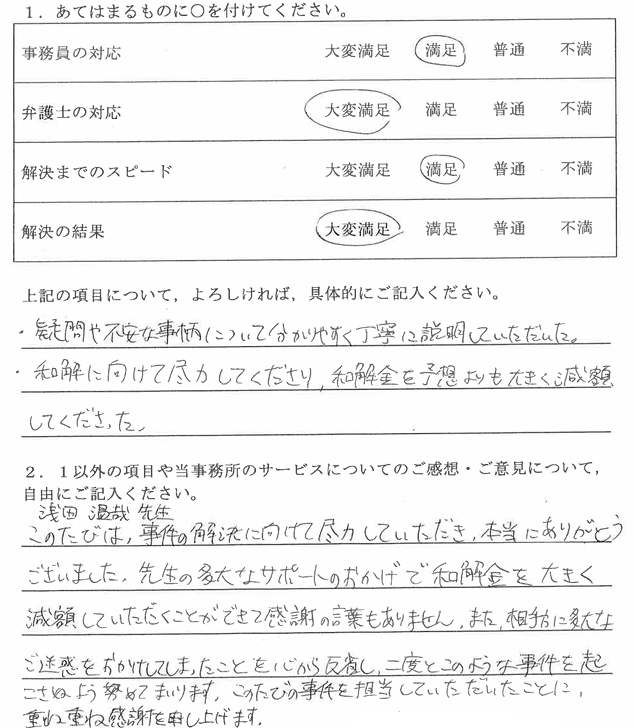 1．あてはまるものに○を付けてください。
事務員の対応 大変満足 満足 普通 不満
弁護士の対応 大変満足 満足 普通 不満
解決までのスピード 大変満足 満足 普通 不満
解決の結果 大変満足 満足 普通 不満
上記の項目について，よろしければ，具体的にご記入ください。
・疑問や不安な事柄について分かりやすく丁寧に説明していただいた。
・和解に向けて尽力してくださり，和解金を予想よりも大きく減額
してくださった。
2．1以外の項目や当事務所のサービスについてのご感想・ご意見について，
自由にご記入ください。
浅田 温哉 先生
このたびは，事件の解決に向けて尽力していただき，本当にありがとう
ございました。先生の多大なサポートのおかげで和解金を大きく
減額していただくことができて感謝の言葉もありません。また，相手方に多大な
ご迷惑をおかけしてしまったことを心から反省し，二度とこのような事件を起
こさぬよう努めてまいります。このたびの事件を担当していただいたことに，
重ね重ね感謝を申し上げます。